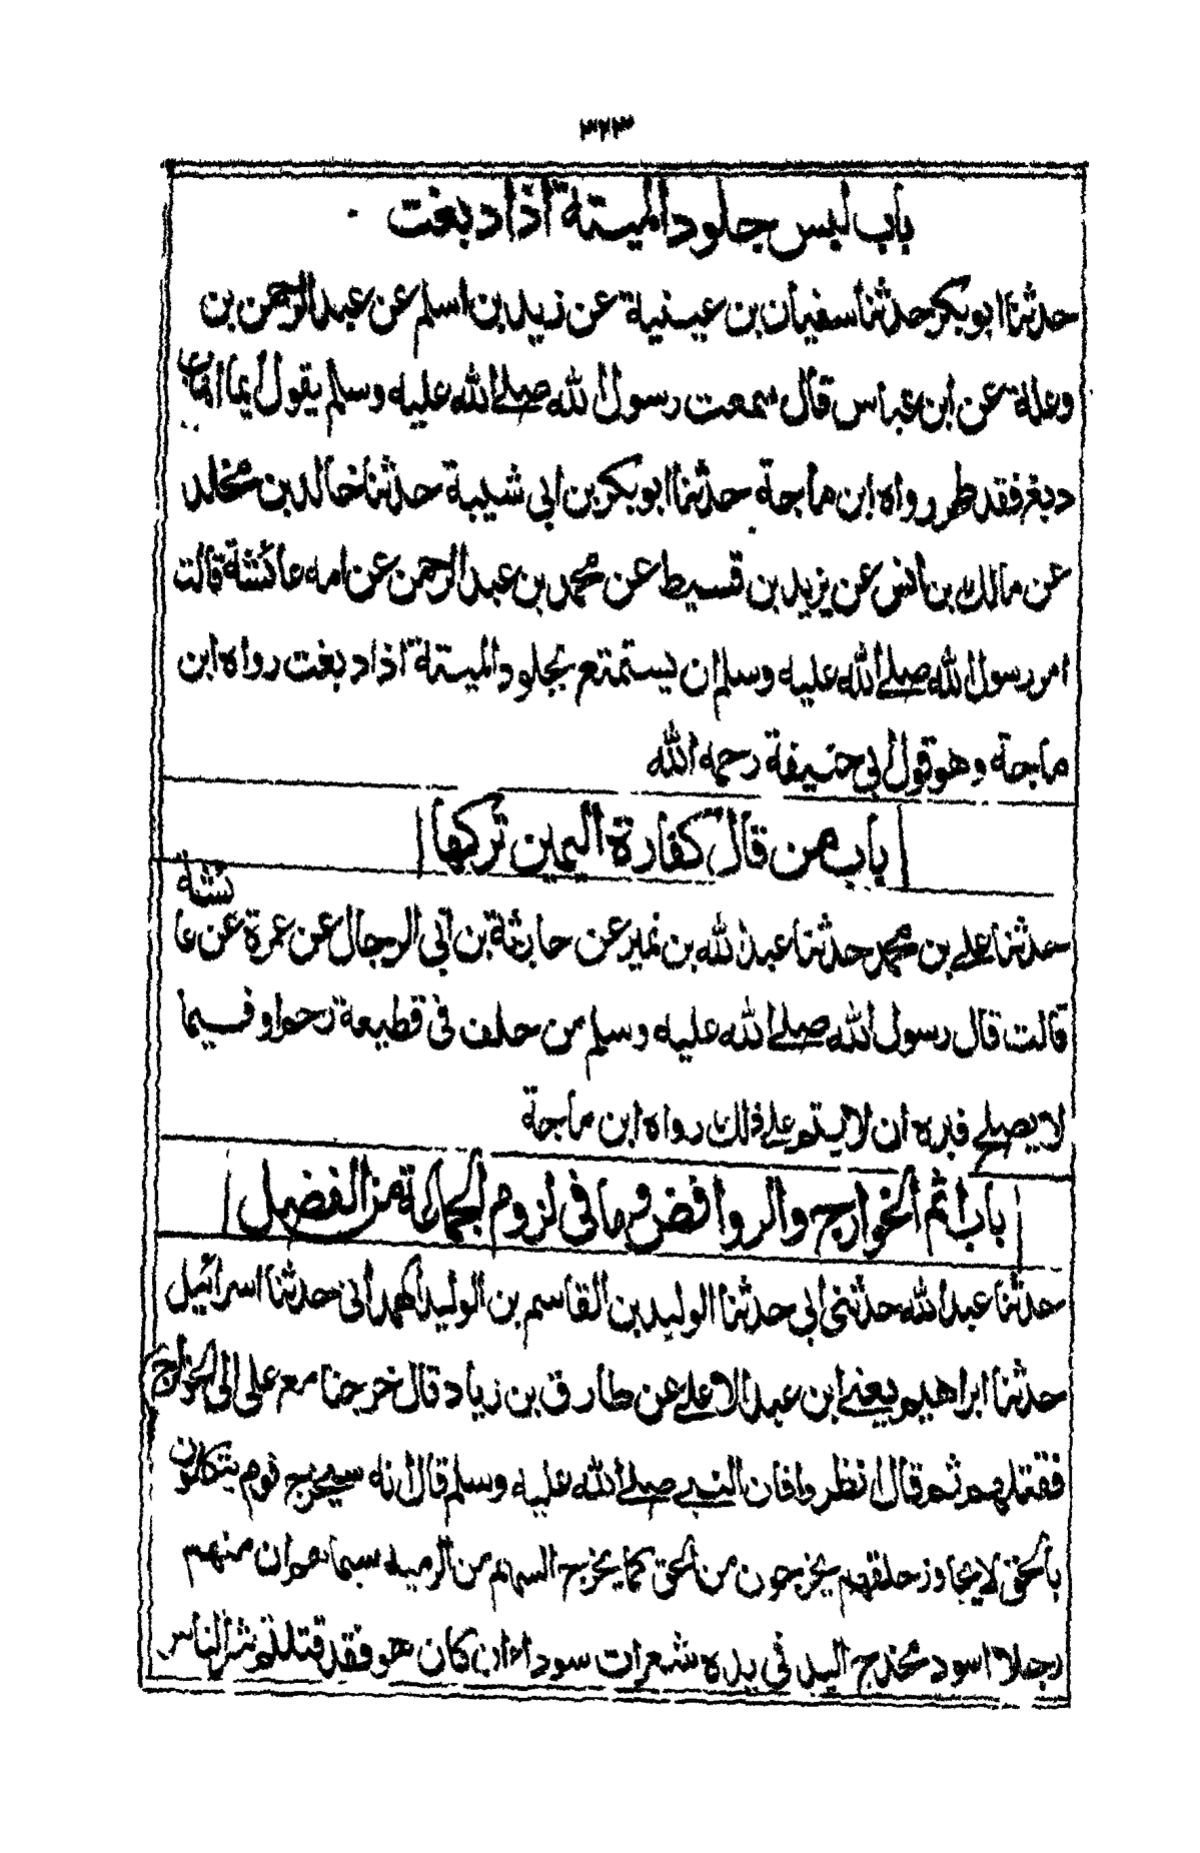 ٣٢٣
باب لبس جلود الميتة اذا دبغت
حدثنا ابو بكر حدثنا سفيان بن عيينة عن زيد بن اسلم عن عبد الرحمن بن
وعلة عن ابن عباس قال سمعت رسول الله صلى الله عليه وسلم يقول ايما اهاب
دبغ فقد طهر رواه ابن ماجة حدثنا ابو بكر بن ابي شيبة حدثنا خالد بن مخلد
عن مالك بن انس عن يزيد بن قسيط عن محمد بن عبد الرحمن عن امه عائشة قالت
امر رسول الله صلے الله عليه وسلم ان يستمتع بجلود الميتة اذا دبغت رواه ابن
ماجة وهو قول ابي حنيفة رحمه الله
باب من قال كفارة اليمين تركها
حدثنا علے بن محمد حدثنا عبد الله بن نمير عن حارثة بن ابي الرجال عن عمرة عن عائشة
قالت قال رسول الله صلے الله عليه وسلم من حلف فى قطيعة رحم او فيما
لا يصلح فبره ان لا يتم علے ذلك رواه ابن ماجة
باب اثم الخوارج والروافض وما فى لزوم الجماعة من الفضل
حدثنا عبد الله حدثنى ابي حدثنا الوليد بن القاسم بن الوليد الهمدانى حدثنا اسرائيل
حدثنا ابراهيم يعنے ابن عبد الاعلے عن طارق بن زياد قال خرجنا مع على الى الخوارج
فقتلهم ثم قال انظروا فان النبے صلے الله عليه وسلم قال انه سيخرج قوم يتكلمون
بالحق لا يجاوز حلقهم يخرجون من الحق كما يخرج السهم من الرمية سيماهم ان منهم
رجلا اسود مخدج اليد فى يده شعرات سود ان كان هو فقد قتلتم شر الناس